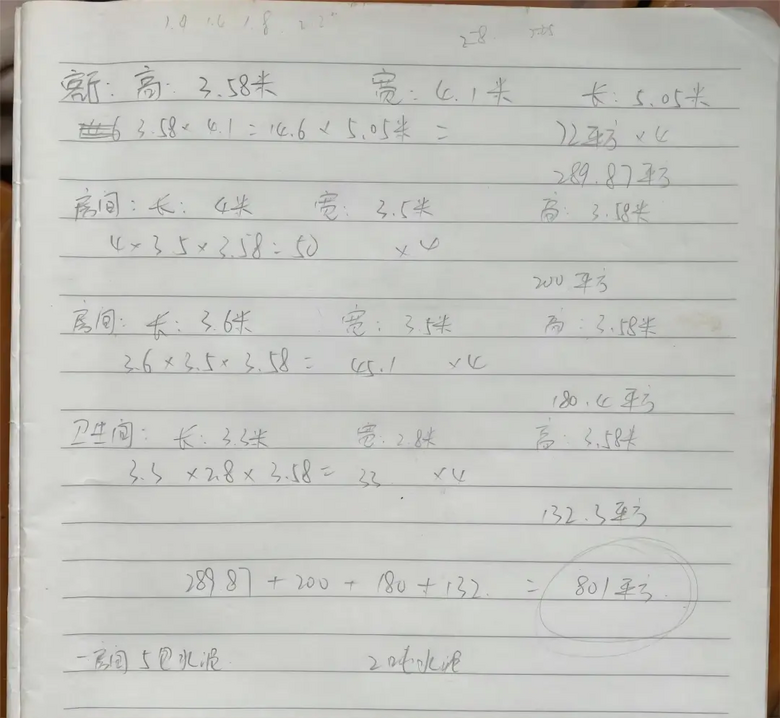 1.0 1.6 1.8
客厅: 高: 3.58米 宽: 4.1米 长: 5.05米
3.58 × 4.1 = 14.6 × 5.05米 = 72平方 × 4
289.87平方
房间: 长: 4米 宽: 3.5米 高: 3.58米
4 × 3.5 × 3.58 = 50 × 4
200平方
房间: 长: 3.6米 宽: 3.5米 高: 3.58米
3.6 × 3.5 × 3.58 = 45.1 × 4
180.4平方
卫生间: 长: 3.3米 宽: 2.8米 高: 3.58米
3.3 × 2.8 × 3.58 = 33 × 4
132.3平方
289.87 + 200 + 180 + 132. = 801平方
一房间5包水泥 2吨水泥